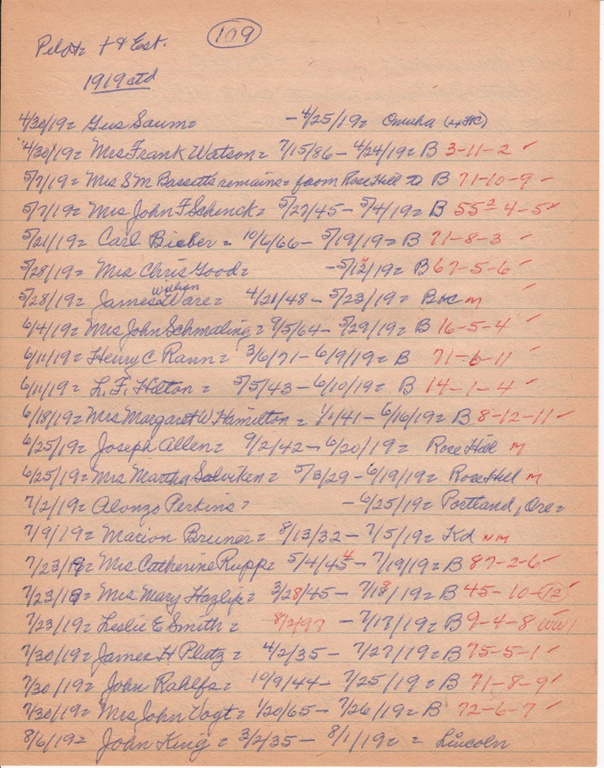 109
Pilot & Est.
1919 ctd
4/30/19= Gus Saum= - 4/25/19= Omaha
4/30/19= Mrs Frank Watson= 7/15/86 - 4/24/19= B 3-11-2 ✓
5/7/19= Mrs S M Bassett's remains= from Rose Hill to B 71-10-9 ✓
5/7/19= Mrs John F Schenck= 5/27/45 - 5/4/19= B 55 4-5 ✓
5/21/19= Carl Bieber= 10/6/66 - 5/19/19= B 71-8-3 ✓
5/28/19= Mrs Chris Good= - 5/12/19= B 67-5-6 ✓
5/28/19= James Ware= 4/21/48 - 5/23/19= M ✓
6/4/19= Mrs John Schmaling= 9/5/64 - 5/29/19= B 16-5-4 ✓
6/11/19= Henry C Rann= 3/6/71 - 6/9/19= B 71-6-11 ✓
6/11/19= L. F. Hilton= 5/5/43 - 6/10/19= B 14-1-4 ✓
6/18/19= Mrs Margaret W Hamilton= 1/1/41 - 6/16/19= B 8-12-11 ✓
6/25/19= Joseph Allen= 9/2/42 - 6/20/19= Rose Hill M
6/25/19= Mrs Martha Salviken= 5/8/29 - 6/19/19= Rose Hill M
7/2/19= Alonzo Perkins= - 6/25/19= Portland, Ore=
7/9/19= Marion Bruner= 8/13/32 - 7/5/19= Kd NM
7/23/19= Mrs Catherine Rupp= 5/4/45 4 - 7/19/19= B 87-2-6 ✓
7/23/19= Mrs Mary Hazlip= 3/28/45 - 7/18/19= B 45-10-(12) ✓
7/23/19= Leslie E Smith= 8/2/97 - 7/17/19= B 9-4-8 WW1
7/30/19= James H Plutz= 4/2/35 - 7/27/19= B 75-5-1 ✓
7/30/19= John Rahlfs= 10/9/44 - 7/25/19= B 71-8-9 ✓
7/30/19= Mrs John Vogt= 1/20/65 - 7/26/19= B 72-6-7 ✓
8/6/19= John King= 3/2/35 - 8/1/19= = Lincoln